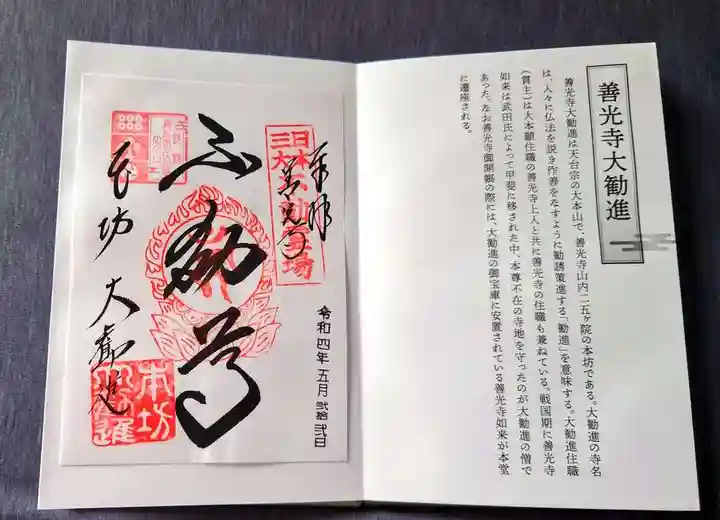 善光寺大勧進
善光寺大勧進は天台宗の大本山で、善光寺山内二五ヶ院の本坊である。大勧進の寺名
は、人々に仏法を説き作善をなすように勧誘策進する「勧進」を意味する。大勧進住職
(貫主)は大本願住職の善光寺上人と共に善光寺の住職も兼ねている。戦国期に善光寺
如来は武田氏によって甲斐に移された中、本尊不在の寺地を守ったのが大勧進の僧で
あった。なお善光寺御開帳の際には、大勧進の御宝庫に安置されている善光寺如来が本堂
に遷座される。
奉拝
善光寺
日本
三大
不動尊
令和四年五月弐拾弐日
本坊 大勧進
本坊
大勧進